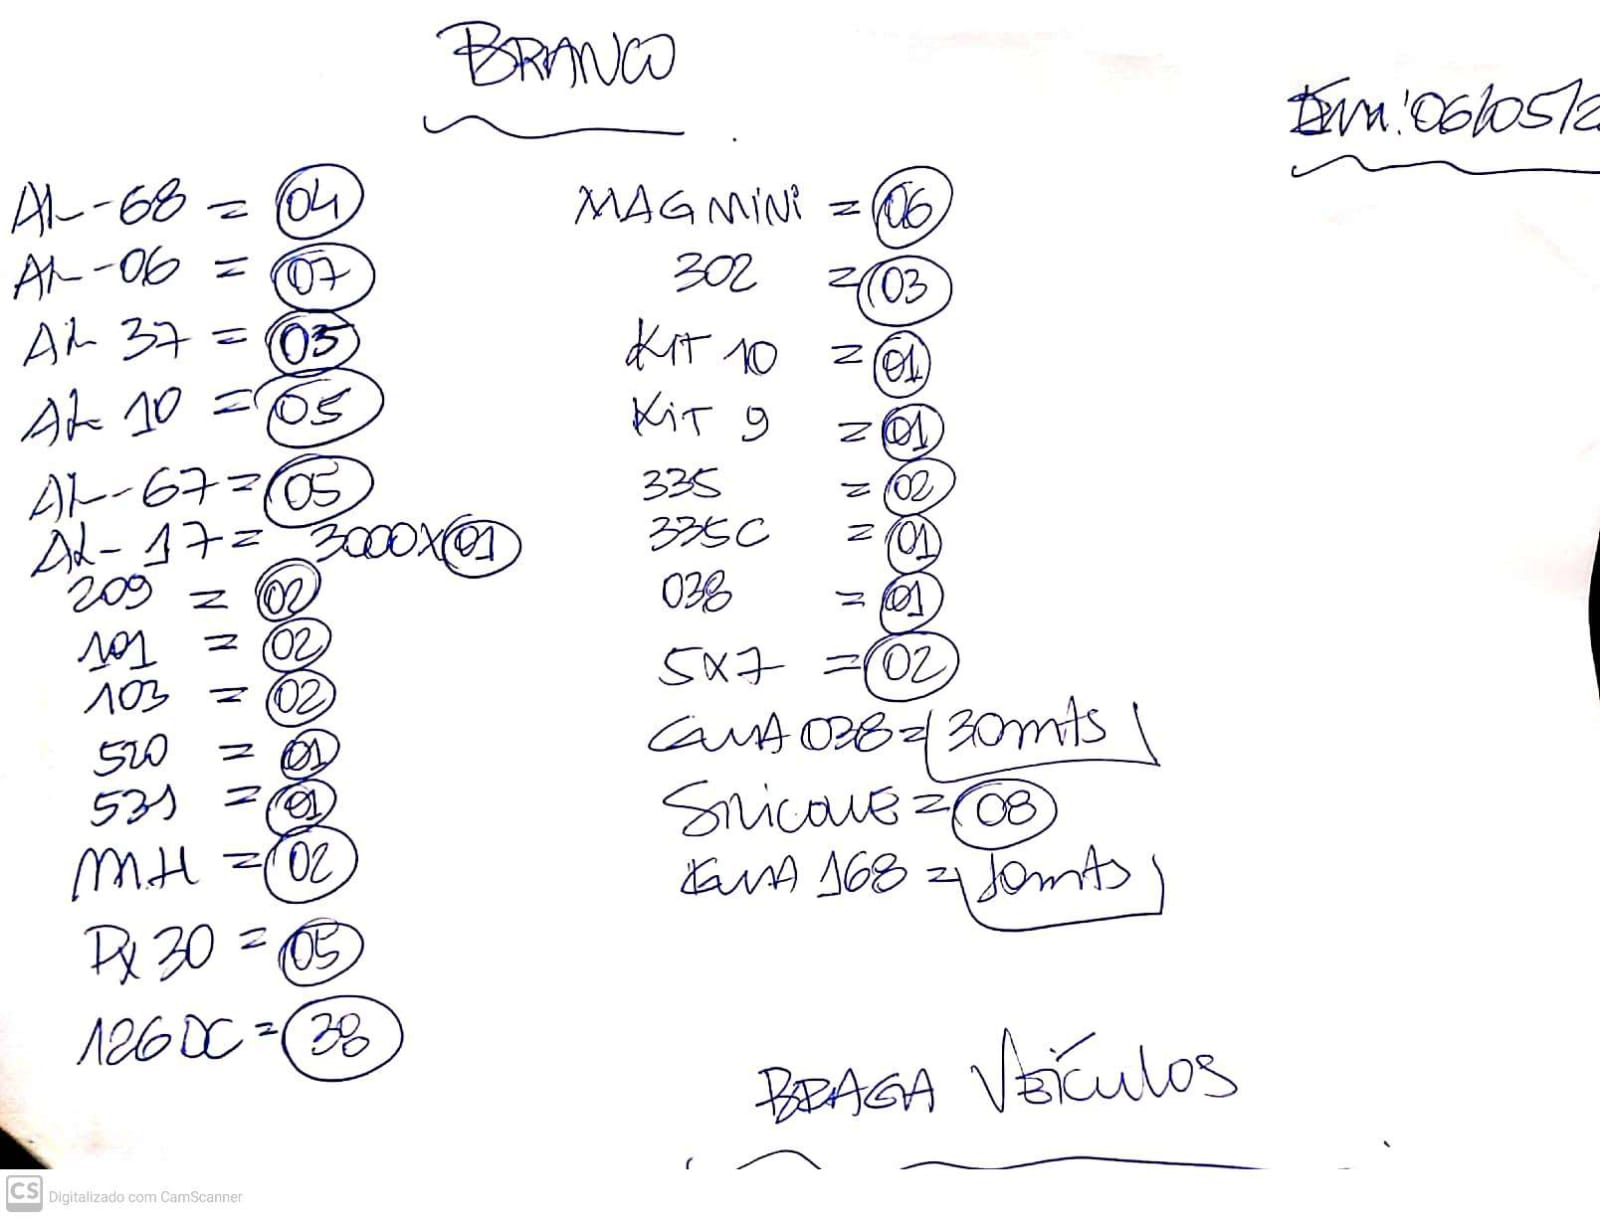 BRANCO
Em: 06/05/2
AL-68 = 04
AL-06 = 07
AL 37 = 03
AL 10 = 05
AL-67 = 05
AL-17 = 3000X01
209 = 02
101 = 02
103 = 02
520 = 01
531 = 01
M.H = 02
PX 30 = 05
126 DC = 38
MAG MINI = 06
302 = 03
KIT 10 = 01
KIT 9 = 01
335 = 02
335C = 01
038 = 01
5X7 = 02
038 = 30mts
SILICONE = 08
168 = 10mts
BRAGA VEÍCULOS
CS Digitalizado com CamScanner